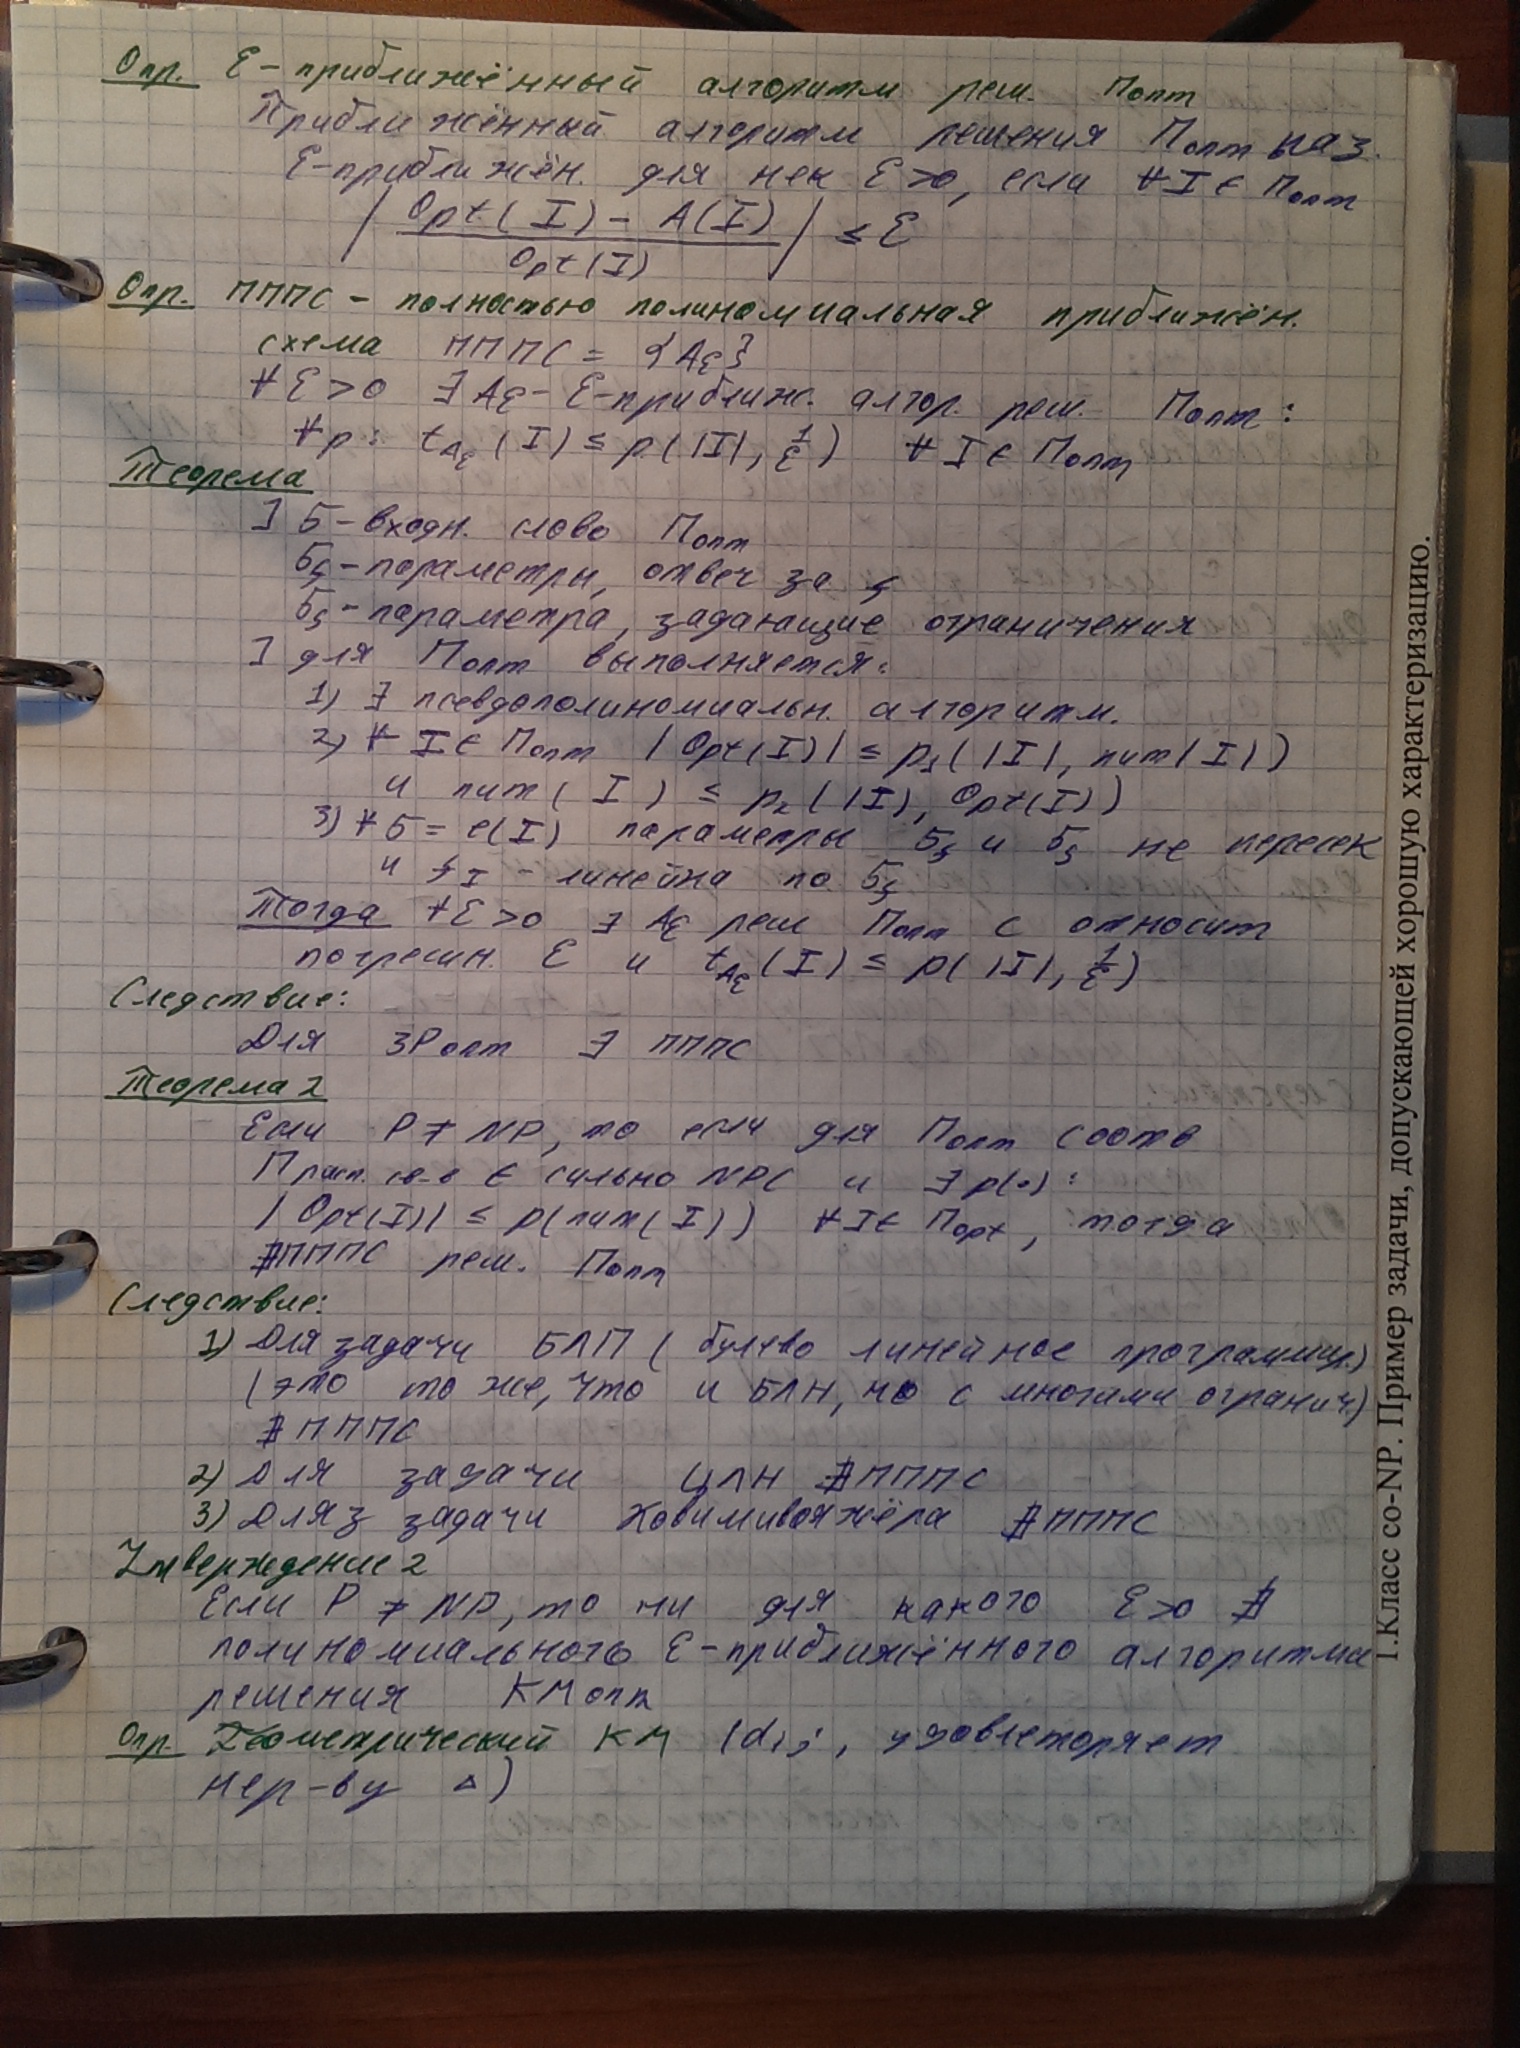 Опр. Ɛ-приближённый алгоритм реш. Попт
Приближённый алгоритм решения Попт наз.
Ɛ-приближён. для нек Ɛ>0, если ∀I∈ Попт
| Opt(I) - A(I) / Opt(I) | ≤ Ɛ
Опр. ПППС - полностью полиномиальная приближён.
схема ПППС = {AƐ}
∀Ɛ>0 ∃AƐ - Ɛ-приближ. алгор. реш. Попт:
∀p: tAƐ(I) ≤ p(|I|, 1/Ɛ) ∀I∈ Попт
Теорема
] Б - входн. слово Попт
Бς - параметры, отвеч за ς
Бς - параметра, задающие ограничения
] для Попт выполняется:
1) ∃ псевдополиномиальн. алгоритм.
2) ∀ I∈ Попт |Opt(I)| ≤ p1(|I|, num(I))
и num(I) ≤ p2(|I|, Opt(I))
3) ∀Б = e(I) параметры Бς и Бς не пересек
и fI - линейна по Бς
Тогда ∀Ɛ>0 ∃ AƐ реш Попт с относит
погрешн. Ɛ и tAƐ(I) ≤ p(|I|, 1/Ɛ)
Следствие:
Для ЗРопт ∃ ПППС
Теорема 2
Если P≠NP, то если для Попт соотв
Прасп. св-в ∈ сильно NPC и ∃p(•):
|Opt(I)| ≤ p(num(I)) ∀I∈ Попt, тогда
∄ПППС реш. Попт
Следствие:
1) Для задачи БЛП (булево линейное программир.)
(это то же, что и БЛН, но с многими огранич.)
∄ПППС
2) Для задачи ЦЛН ∄ПППС
3) Для з задачи Ковимивояжёра ∄ПППС
Утверждение 2
Если P≠NP, то ни для какого Ɛ>0 ∄
полиномиального Ɛ-приближённого алгоритма
решения КМопт
Опр. Геометрический КМ (dij, удовлеторяет
нер-ву Δ)
1.Класс co-NP. Пример задачи, допускающей хорошую характеризацию.